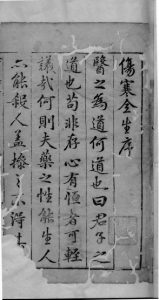 傷寒全生序
醫之為道何道也曰君子之
道也苟非存心有恒者可輕
議哉何則夫藥之性能生人
亦能殺人蓋操之不得其